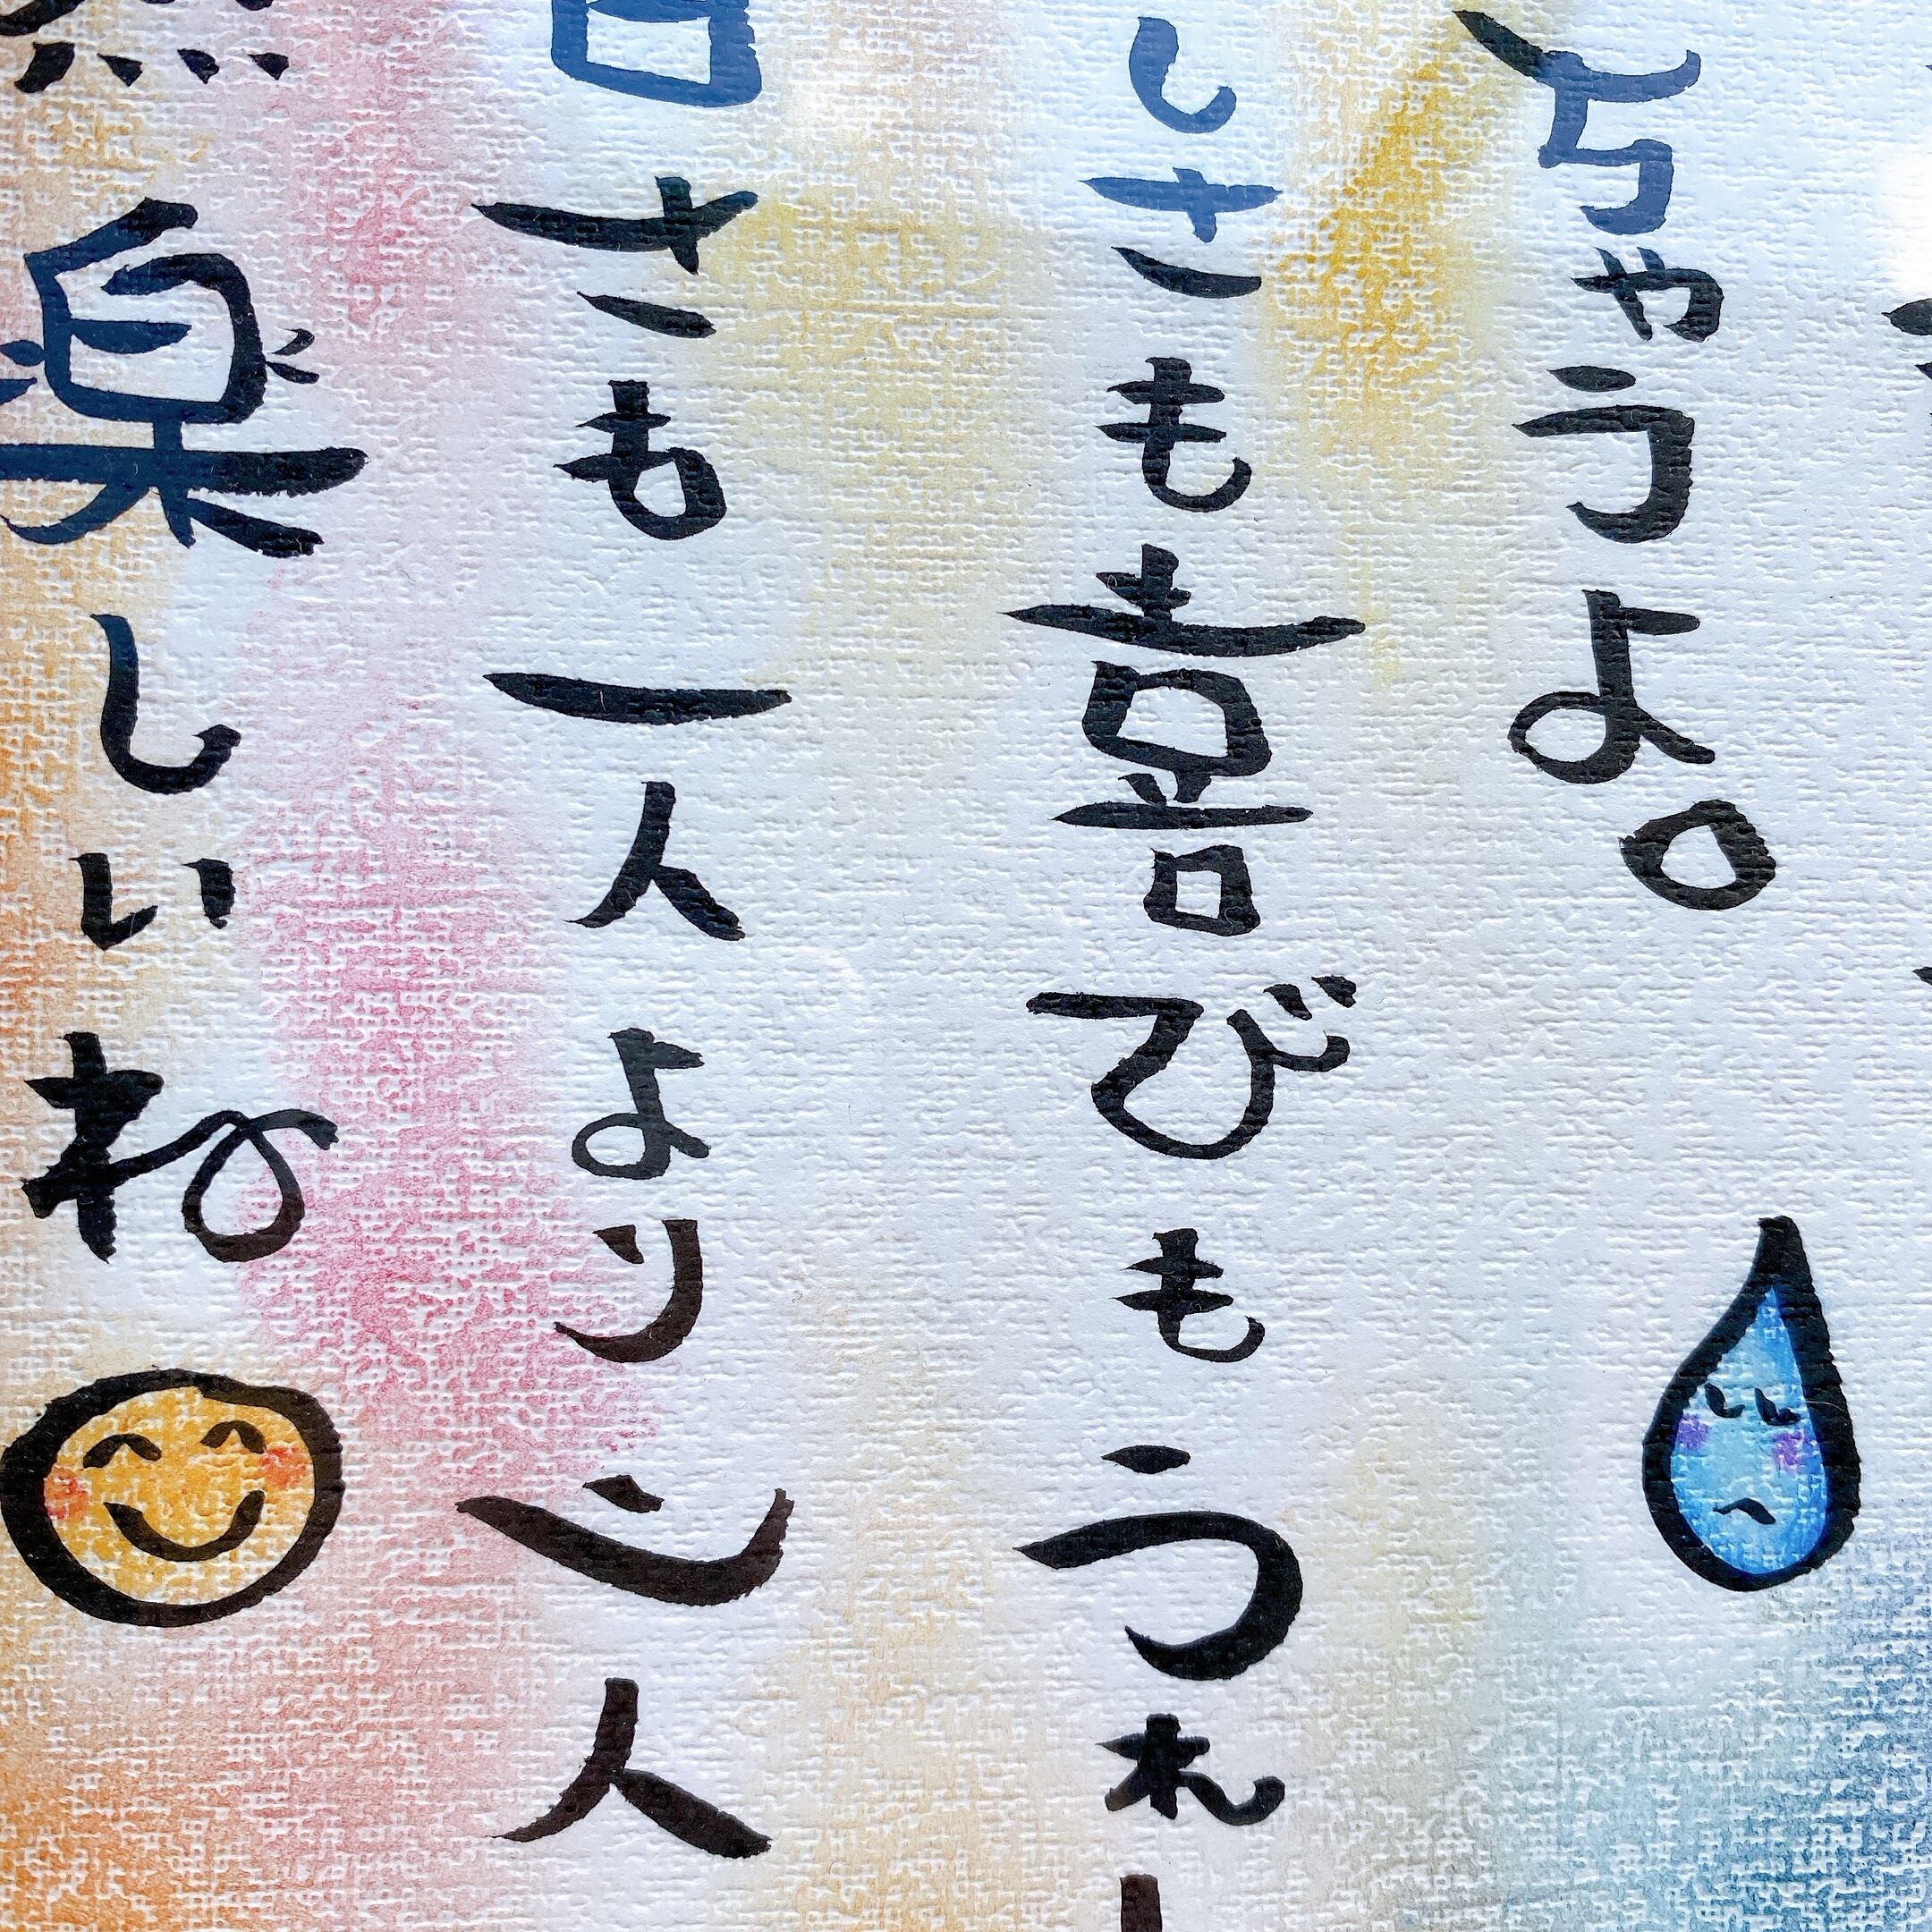 ちゃうよ。
しさも喜びもうれ
さも一人より二人
楽しいね